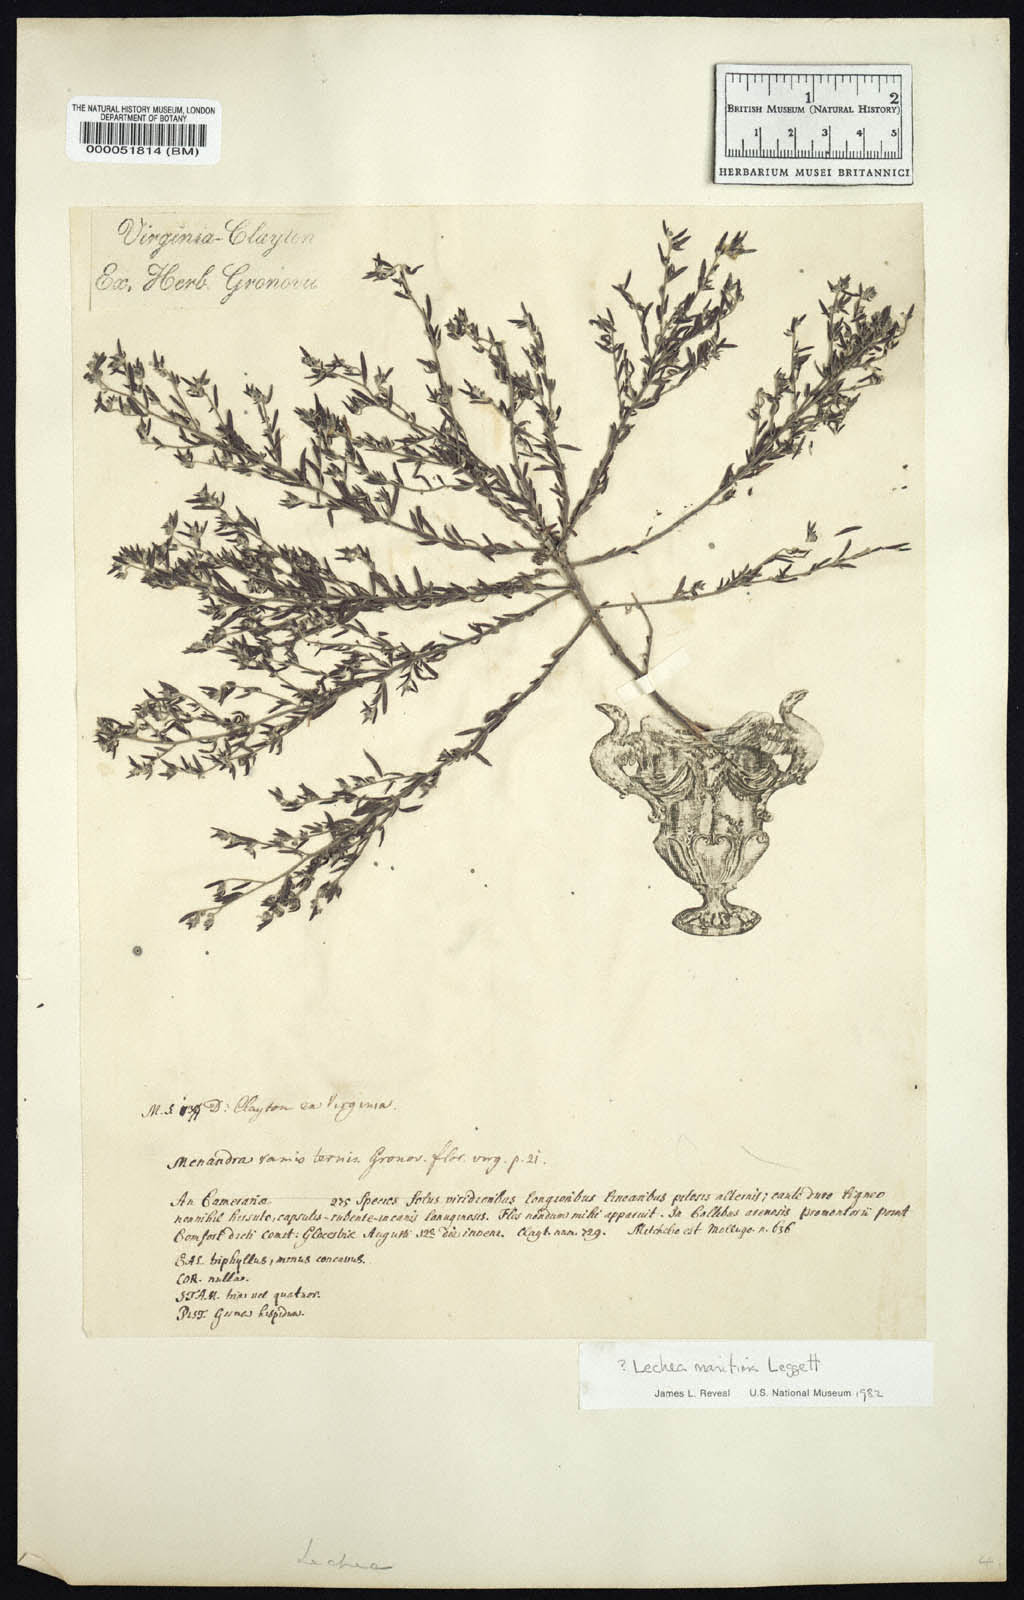 THE NATURAL HISTORY MUSEUM, LONDON
DEPARTMENT OF BOTANY
000051814 (BM)
1 2
BRITISH MUSEUM (NATURAL HISTORY)
1 2 3 4 5
HERBARIUM MUSEI BRITANNICI
Virginia-Clayton
Ex. Herb. Gronovii
M.S. D: Clayton ex Virginia.
Menandra ramis ternis. Gronov. flor. virg. p. 21.
An Cameraria 275 Species folus viridioribus longioribus linearibus pilosis alternis; caule duro ligneo
nonnihil hirsuto, capsulis rubente-incanis lanuginosis. Flos nondum mihi apparuit. In Collibus arenosis promontorii point
Comfort dicti comit: Glocestriæ Augusti die inveni. Clayt. num. 729. Mitchelio est Mollugo. n. 636
CAL. triphyllus, minus concavus.
COR. nullae.
STAM. tria vel quatuor.
PIST. Germen hispidum.
? Lechea maritima Leggett
James L. Reveal U.S. National Museum 1982
Lechea
4.